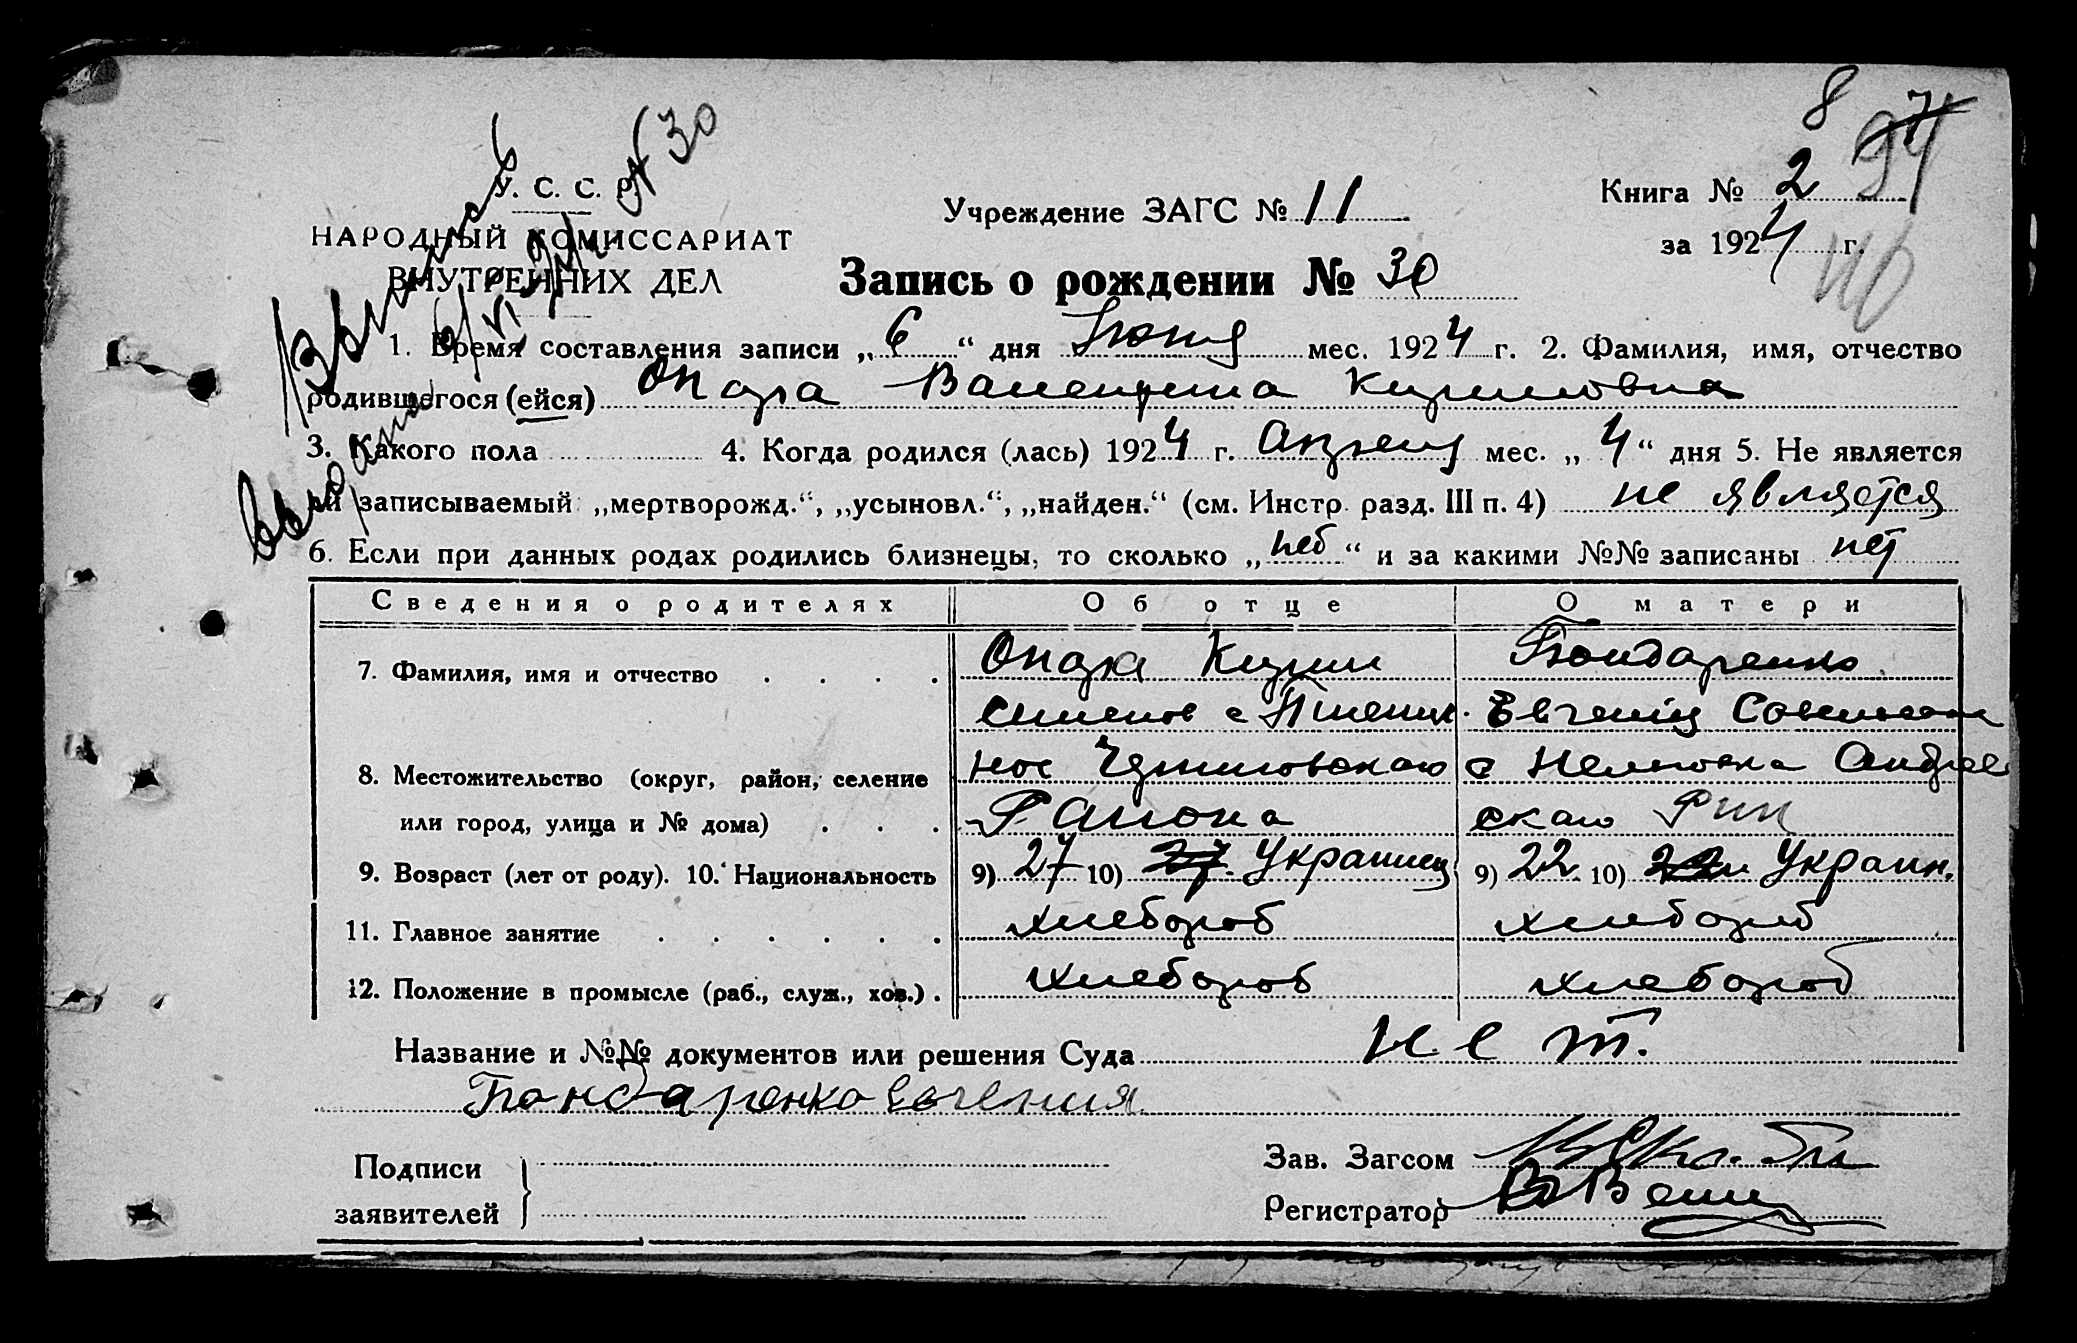 8
94
У. С. С. Р.
Выпись
№ 30
Учреждение ЗАГС № 11
Книга № 2
НАРОДНЫЙ КОМИССАРИАТ
за 1924 г.
ВНУТРЕННИХ ДЕЛ
Запись о рождении № 30
6/VI 24
выдана
1. Время составления записи „6“ дня Июня мес. 1924 г. 2. Фамилия, имя, отчество
родившегося (ейся) Опара Валентина Кириловна
3. Какого пола 4. Когда родился (лась) 1924 г. Апреля мес. „4“ дня 5. Не является
ли записываемый „мертворожд.“, „усыновл.“, „найден.“ (см. Инстр. разд. III п. 4) не является
6. Если при данных родах родились близнецы, то сколько „нет“ и за какими №№ записаны нет
Сведения о родителях Об отце О матери
7. Фамилия, имя и отчество Опара Кирил Бондаренко
Семенов с Пшенич. Евгения
8. Местожительство (округ, район, селение ное с Андрее
или город, улица и № дома) Района скаго Рик
9. Возраст (лет от роду). 10. Национальность 9) 27 10) 27 Украинец 9) 22 10) Украин.
11. Главное занятие хлебороб хлебороб
12. Положение в промысле (раб., служ., хоз.) хлебороб хлебороб
Название и №№ документов или решения Суда нет.
Бондаренко Евгения
Подписи
заявителей
Зав. Загсом
Регистратор